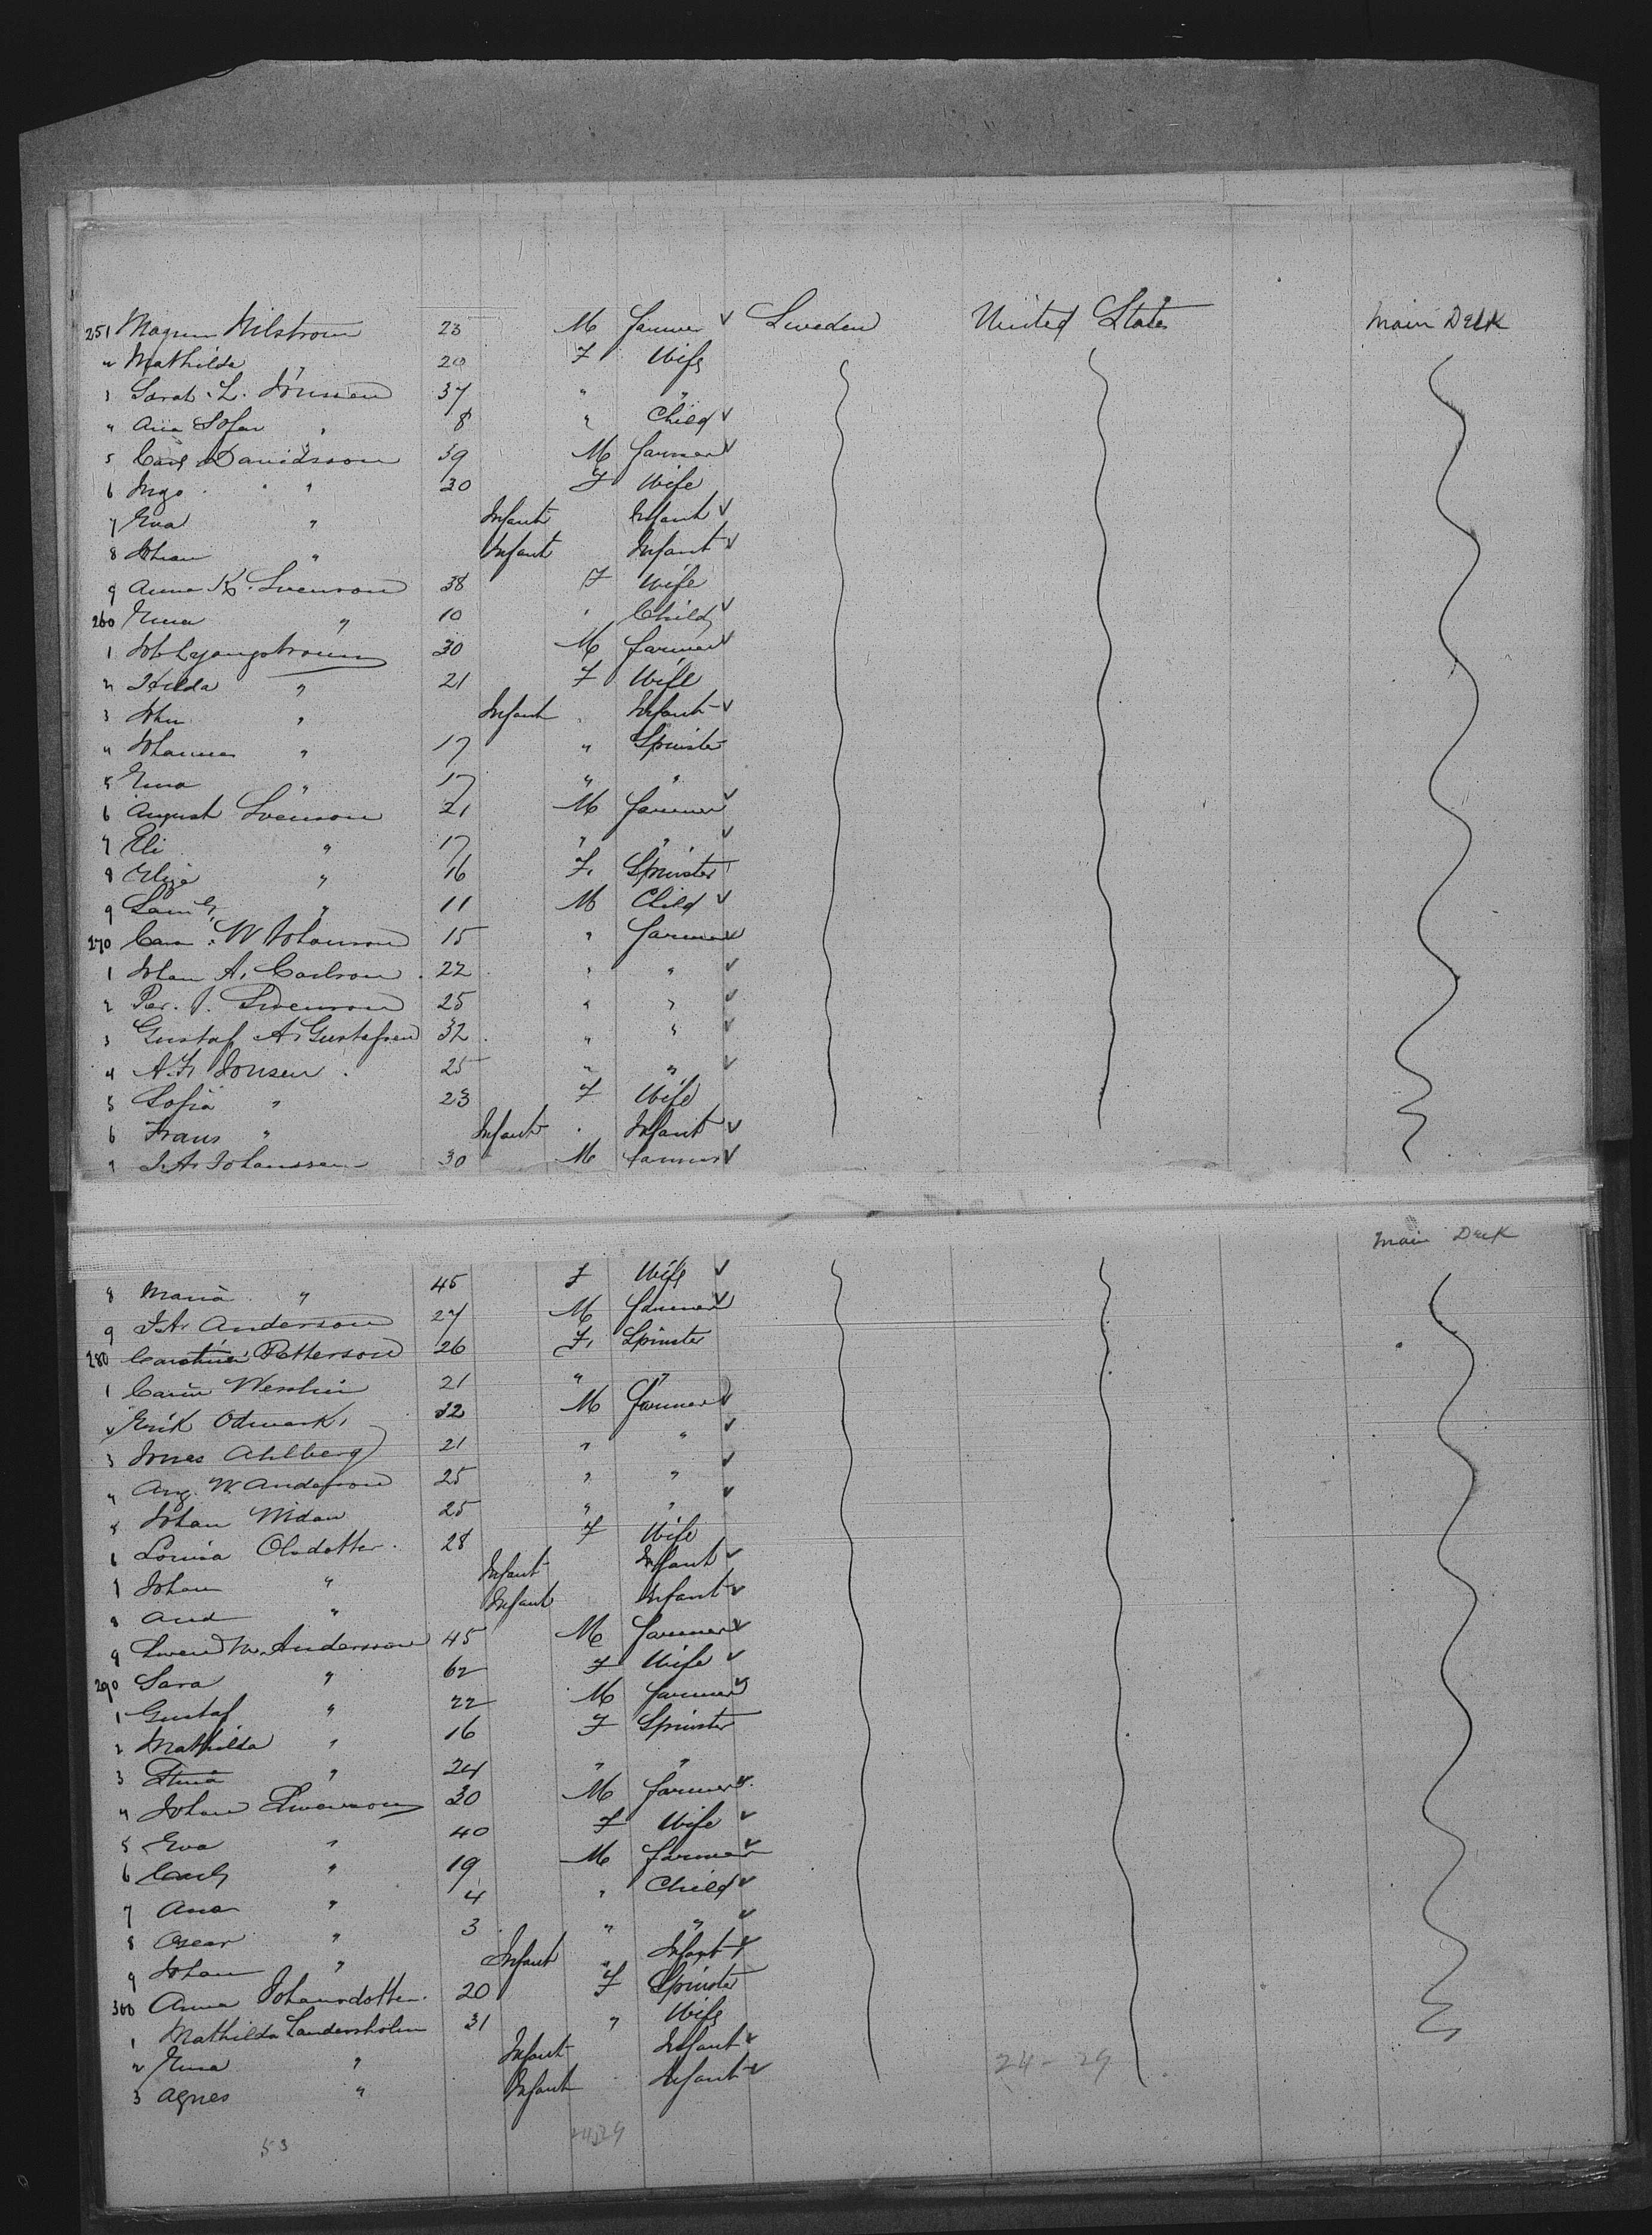 251 Magnus Nilstrom 23 M farmer ✓ Sweden United States Main Deck
" Mathilda " 20 F Wife
3 Sarah L. Jönsson 37 " "
" Ana Sofar " 8 " Child ✓
5 Carl Davidsson 39 M farmer ✓
6 Inga " 30 F Wife
7 Eva " Infant Infant ✓
8 Johan " Infant Infant ✓
9 Anna K. Svenson 38 F Wife
260 Ema " 10 " Child ✓
1 Joh Ljongstrom 30 M farmer ✓
2 Hilda " 21 F Wife
3 John " Infant " Infant ✓
4 Johanna " 17 " Spinster
5 Ema " 17 " "
6 August Svenson 21 M farmer ✓
7 Eli " 17 " " ✓
8 Eliza " 16 F. Spinster
9 Saml " 11 M Child ✓
270 W Johanson 15 " farmer ✓
1 Johan A. Carlson 22 " " ✓
2 Per. J. Swenson 25 " " ✓
3 Gustaf A. Gustafsen 32 " " ✓
4 A. F. Jonsen 25 " " ✓
5 Sofia " 23 F Wife
6 Frans " Infant " Infant ✓
7 J. A. Johanssen 30 M farmer ✓
Main Deck
8 Maria " 45 F Wife ✓
9 J. A. Anderson 27 M farmer ✓
280 Carolina Petterson 26 F. Spinster
1 Carin 21 " "
2 Erik Odmark 32 M farmer ✓
3 Jonas Ahlberg 21 " " ✓
4 Aug. W. Anderson 25 " " ✓
5 Johan 25 " " ✓
6 Lovisa Olsdotter 28 F Wife
7 Johan " Infant Infant ✓
8 And " Infant Infant ✓
9 Swen M. Andersson 45 M farmer ✓
290 Sara " 62 F Wife ✓
1 Gustaf " 22 M farmer ✓
2 Mathilda " 16 F Spinster
3 Stina " 24 " "
4 Johan Swenson 30 M farmer ✓
5 Eva " 40 F Wife ✓
6 Carl " 19 M farmer ✓
7 Ana " 4 " Child ✓
8 Oscar " 3 " " ✓
9 Johan " Infant " Infant ✓
300 Anna Johansdotter 20 F Spinster
1 Mathilda Landersholm 31 " Wife
2 Ema " Infant Infant ✓
3 Agnes " Infant Infant ✓
24-29
53 2429